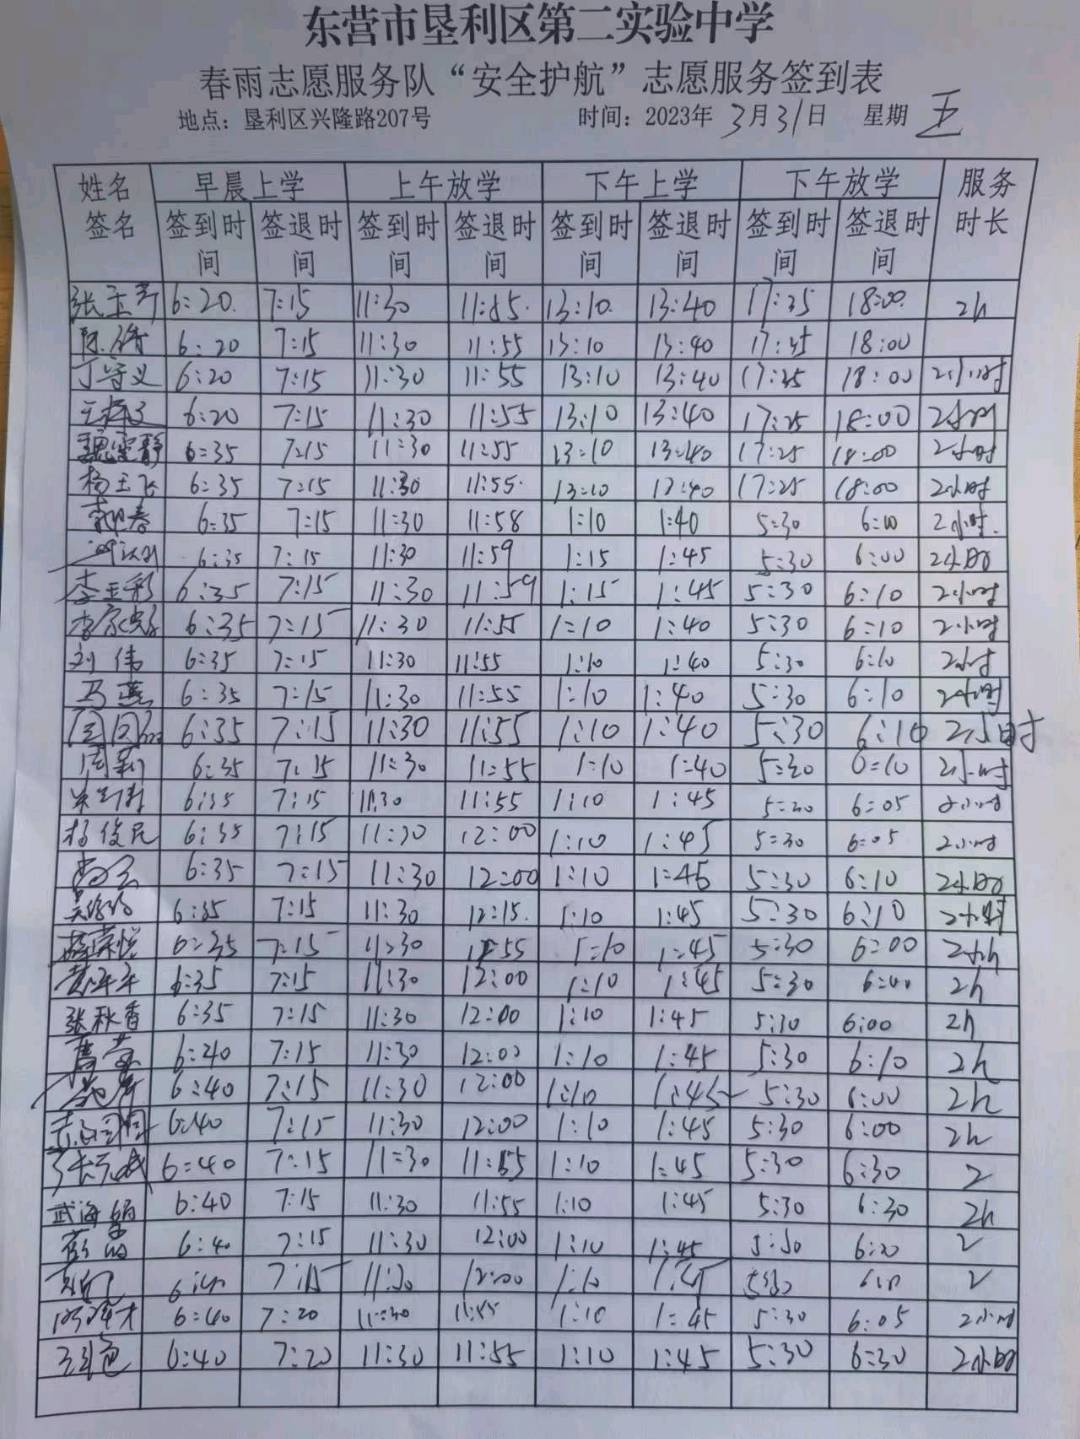 东营市垦利区第二实验中学
春雨志愿服务队“安全护航”志愿服务签到表
地点：垦利区兴隆路207号 时间：2023年3月31日 星期五
姓名签名 早晨上学 上午放学 下午上学 下午放学 服务时长
签到时间 签退时间 签到时间 签退时间 签到时间 签退时间 签到时间 签退时间
6:20 7:15 11:30 11:55 13:10 13:40 17:25 18:00 2h
6:20 7:15 11:30 11:55 13:10 13:40 17:25 18:00
丁守义 6:20 7:15 11:30 11:55 13:10 13:40 17:25 18:00 2小时
6:20 7:15 11:30 11:55 13:10 13:40 17:25 18:00 2小时
魏雪静 6:35 7:15 11:30 11:55 13:10 13:40 17:25 18:00 2小时
杨玉飞 6:35 7:15 11:30 11:55 13:10 13:40 17:25 18:00 2小时
6:35 7:15 11:30 11:58 1:10 1:40 5:30 6:10 2小时
6:35 7:15 11:30 11:59 1:15 1:45 5:30 6:00 2小时
李玉彩 6:35 7:15 11:30 11:59 1:15 1:45 5:30 6:10 2小时
6:35 7:15 11:30 11:55 1:10 1:40 5:30 6:10 2小时
刘伟 6:35 7:15 11:30 11:55 1:10 1:40 5:30 6:10 2小时
马燕 6:35 7:15 11:30 11:55 1:10 1:40 5:30 6:10 2小时
6:35 7:15 11:30 11:55 1:10 1:40 5:30 6:10 2小时
周莉 6:35 7:15 11:30 11:55 1:10 1:40 5:30 6:10 2小时
6:35 7:15 11:30 11:55 1:10 1:45 5:30 6:05 2小时
杨俊民 6:35 7:15 11:30 12:00 1:10 1:45 5:30 6:05 2小时
6:35 7:15 11:30 12:00 1:10 1:45 5:30 6:10 2小时
6:35 7:15 11:30 12:15 1:10 1:45 5:30 6:10 2小时
6:35 7:15 11:30 11:55 1:10 1:45 5:30 6:00 2小h
6:35 7:15 11:30 12:00 1:10 1:45 5:30 6:00 2h
张秋香 6:35 7:15 11:30 12:00 1:10 1:45 5:30 6:00 2h
6:40 7:15 11:30 12:00 1:10 1:45 5:30 6:10 2h
6:40 7:15 11:30 12:00 1:10 1:45 5:30 6:00 2h
6:40 7:15 11:30 12:00 1:10 1:45 5:30 6:00 2h
6:40 7:15 11:30 11:55 1:10 1:45 5:30 6:30 2
武海娟 6:40 7:15 11:30 11:55 1:10 1:45 5:30 6:30 2h
6:40 7:15 11:30 12:00 1:10 1:45 5:30 6:20 2
6:40 7:15 11:30 12:00 1:10 1:45 5:30 2
6:40 7:20 11:30 11:55 1:10 1:45 5:30 6:05 2小时
6:40 7:20 11:30 11:55 1:10 1:45 5:30 6:30 2小时